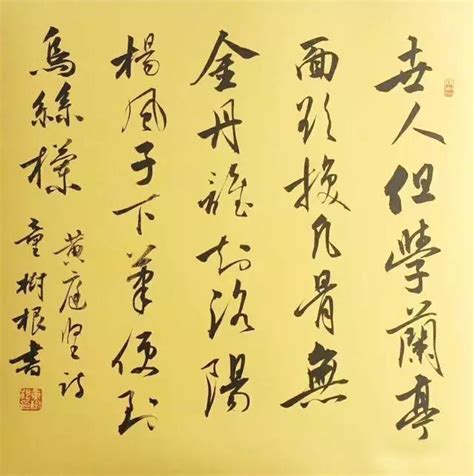 世人但學蘭亭
面欲換凡骨無
金丹誰知洛陽
楊風子下筆便到
烏絲欄
黃庭堅詩
童樹根書